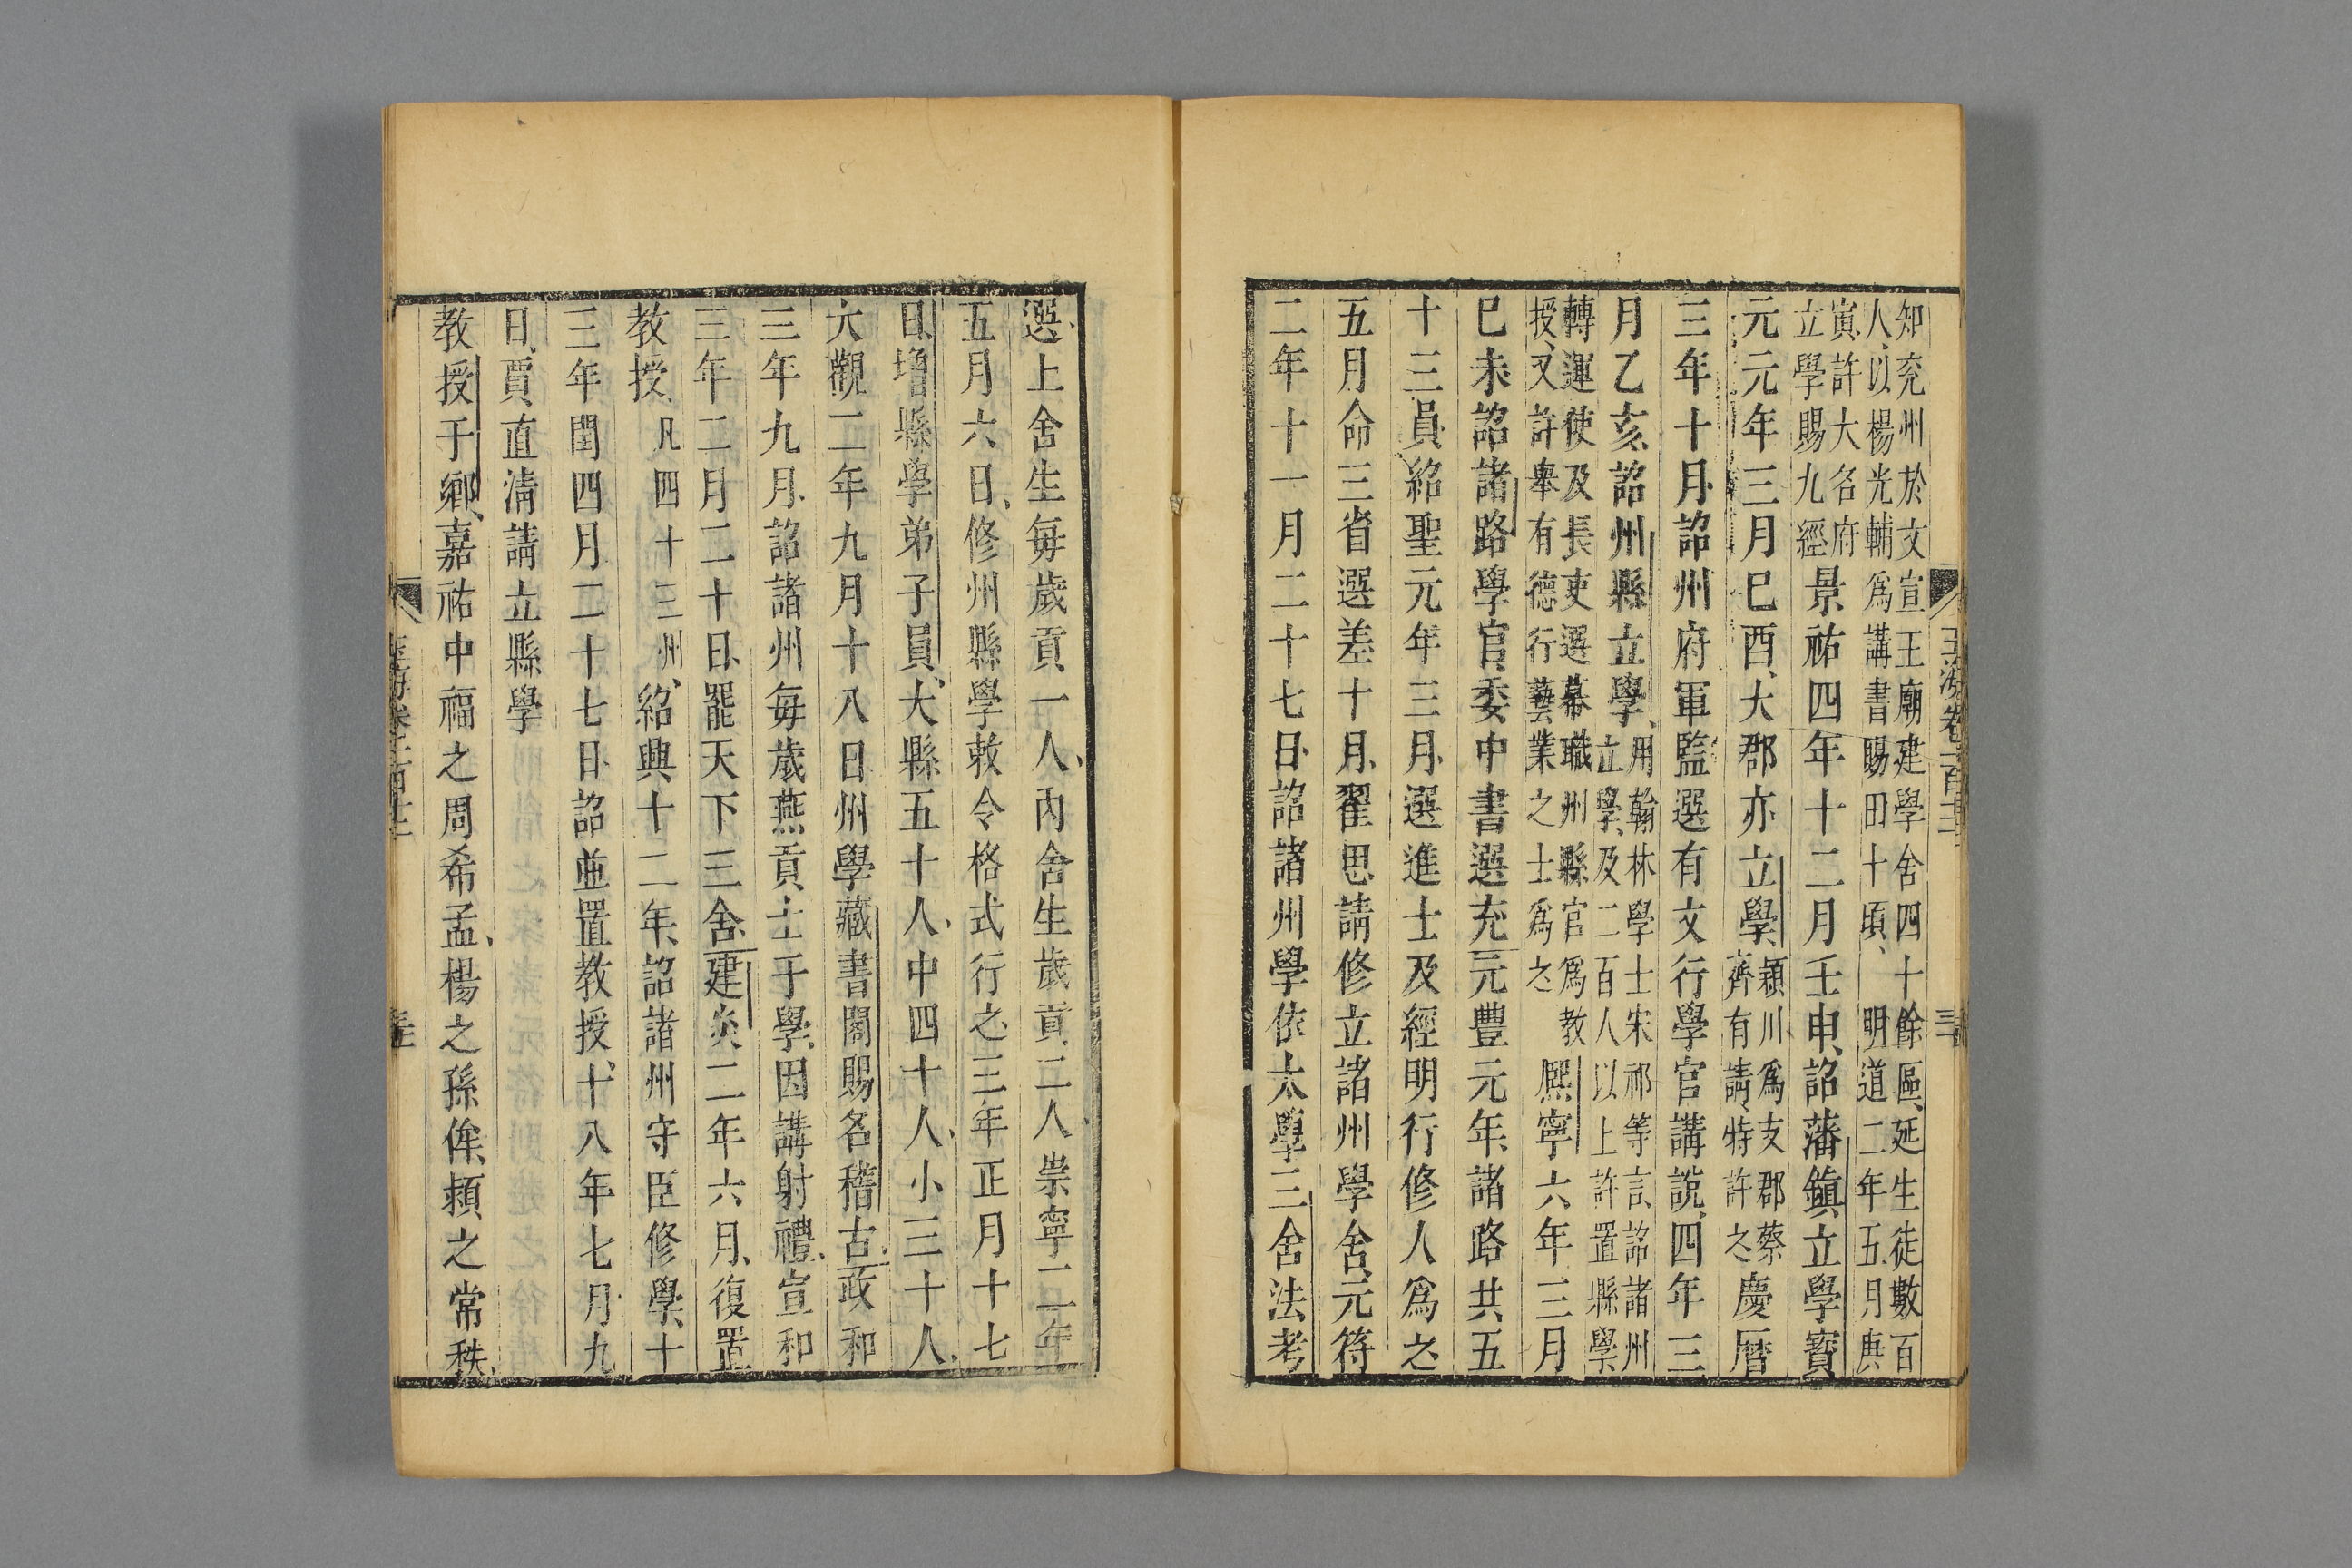 玉海卷一百十二 三
知兖州於文宣王廟建學舍四十餘區、延生徒數百
人、以楊光輔爲講書賜田十頃、明道二年五月庚
寅、許大名府
立學賜九經
景祐四年十二月壬申、詔藩鎮立學寶
元元年三月巳酉、大郡亦立學、
潁川爲支郡蔡
齊有請、特許之
慶曆
三年十月、詔州府軍監選有文行學官講說、四年三
月乙亥、詔州縣立學、
用翰林學士宋祁等言、詔諸州
立學、及二百人以上許置縣學
轉運使及長吏選幕職州縣官爲教
授、又許舉有德行藝業之士爲之
熙寧六年三月
巳未、詔諸路學官、委中書選充元豐元年、諸路共五
十三員、紹聖元年三月、選進士及經明行修人爲之
五月命三省選差十月、翟思請修立諸州學舍、元符
二年十一月二十七日、詔諸州學依太學三舍法考
選、上舍生每歲貢一人、內舍生歲貢二人、崇寧二年
五月六日、修州縣學敕令格式行之、三年正月十七
日、增縣學弟子員、大縣五十人、中四十人、小三十人、
大觀二年九月十八日州學藏書閣賜名稽古、政和
三年九月、詔諸州每歲燕貢士于學、因講射禮、宣和
三年二月二十日、罷天下三舍、建炎二年六月、復置
教授、凡四十三州、紹興十二年、詔諸州守臣修學、十
三年閏四月二十七日、詔並置教授、十八年七月九
日、賈直清請立縣學
教授于鄉、嘉祐中福之周希孟、楊之孫侔、潁之常秩、